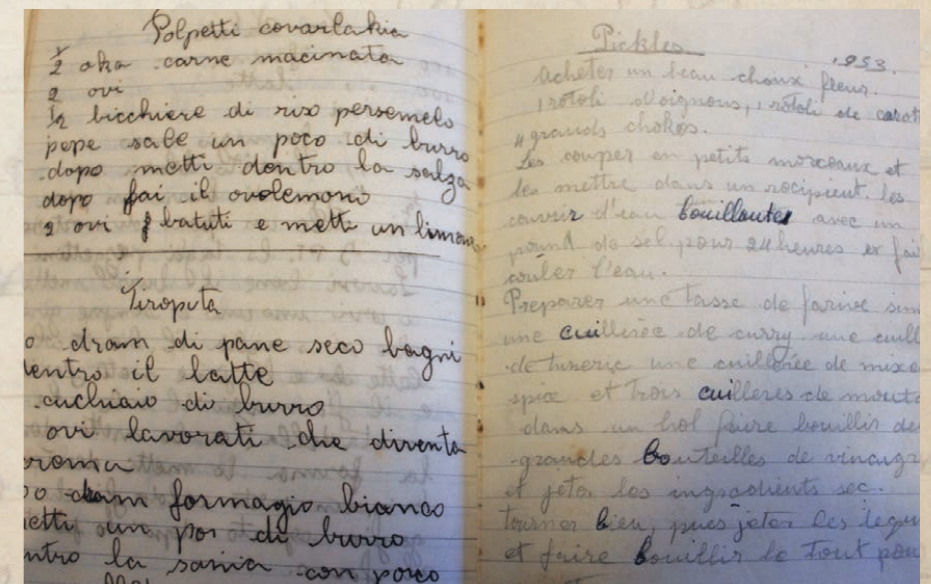 Polpetti covarlakia
1/2 oka carne macinata
2 ovi
1/2 bicchiere di riso persemelo
pepe sale un poco di burro
dopo metti dentro la salza
dopo fai il ovolemono
2 ovi batuti e metti un limone
Tiropita
o dram di pane seco bagni
dentro il latte
cuchiaio di burro
ovi lavorati che diventa
roma
00 dram formagio bianco
metti un poi di burro
ntro la sania con poco
Pickles
1953.
Acheter un beau choux fleur.
1 rotoli d'oignons, 1 rotoli de carot
4 grands chokos.
Les couper en petits morceaux et
les mettre dans un recipient. les
couvrir d'eau bouillantes avec un
pound de sel pour 24 heures et fai
couler l'eau.
Preparer une tasse de farine sim
une cuillerée de curry une cuill
de tumeric une cuillerée de mixe
spice et trois cuilleres de mouta
dans un bol faire bouillir de
grandes bouteilles de vinaigr
et jeter les ingredients sec.
tourner bien, pues jeter les legu
et faire bouillir le tout pou